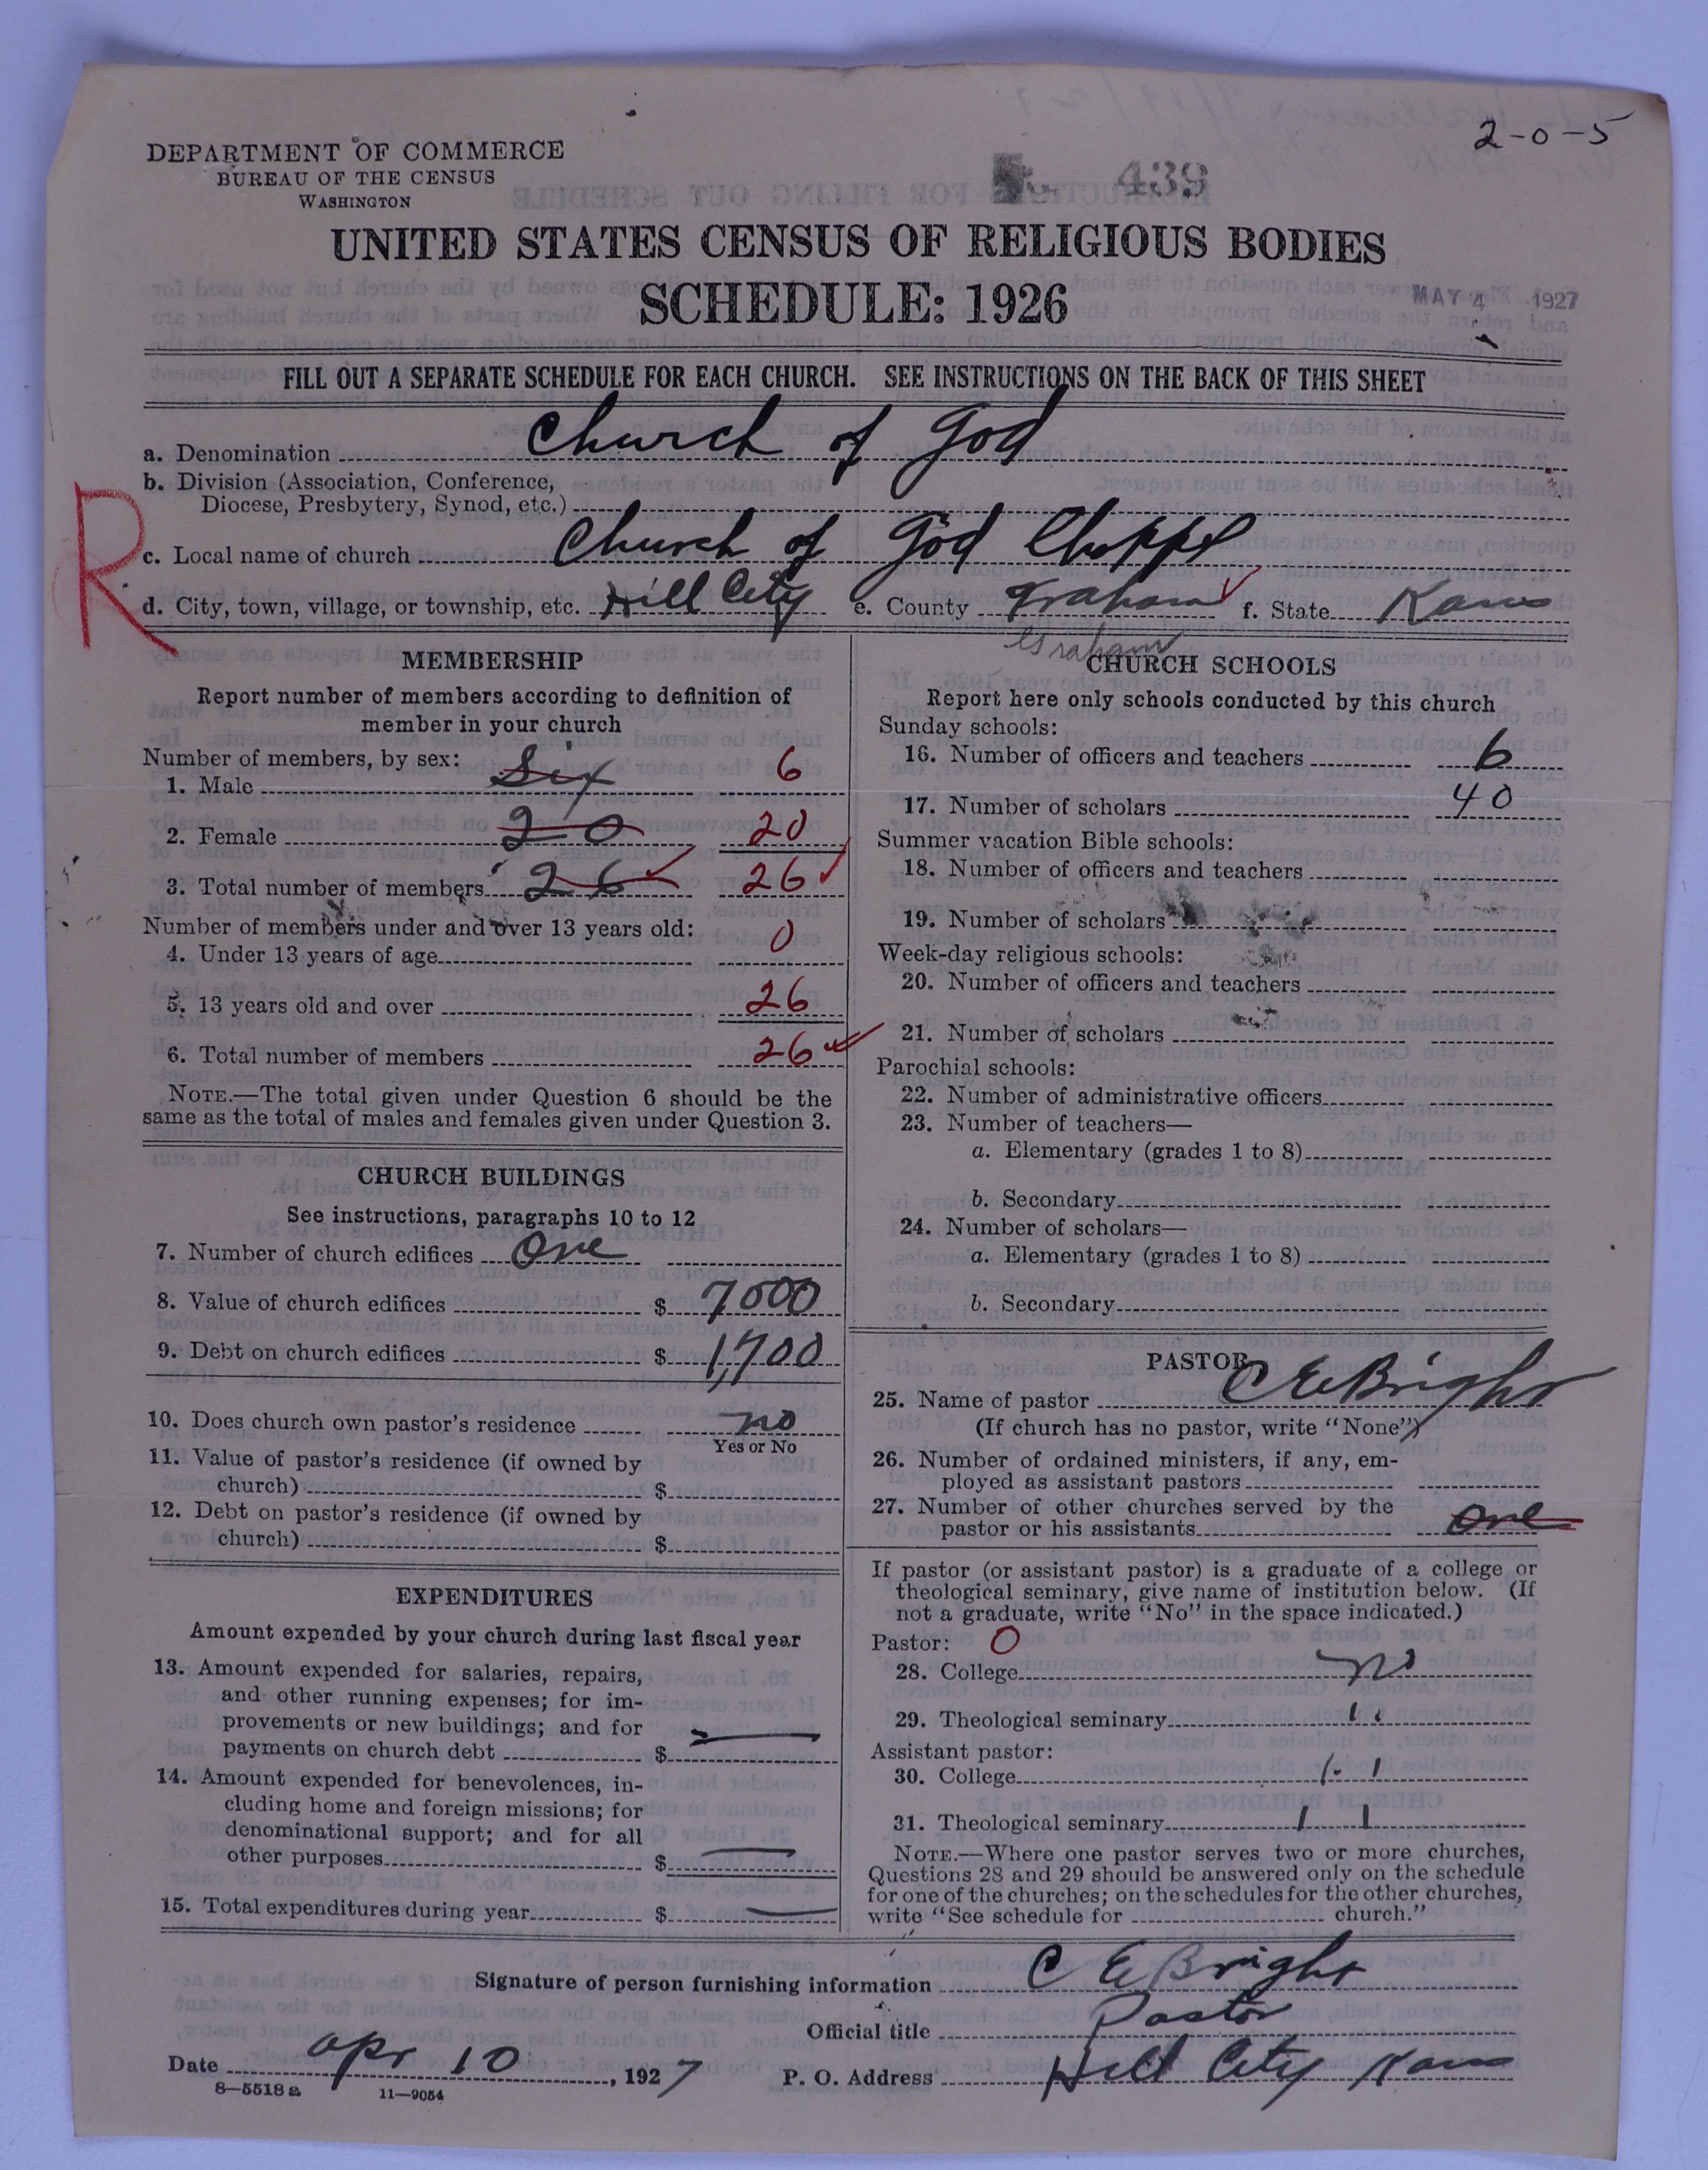 2-0-5
DEPARTMENT OF COMMERCE
BUREAU OF THE CENSUS
WASHINGTON
439
UNITED STATES CENSUS OF RELIGIOUS BODIES
SCHEDULE: 1926
MAY 4 1927
FILL OUT A SEPARATE SCHEDULE FOR EACH CHURCH. SEE INSTRUCTIONS ON THE BACK OF THIS SHEET
R
a. Denomination Church of God
b. Division (Association, Conference,
Diocese, Presbytery, Synod, etc.)
c. Local name of church Church of God Chappel
d. City, town, village, or township, etc. Hill City e. County Graham f. State Kans
Graham
MEMBERSHIP
Report number of members according to definition of
member in your church
Number of members, by sex:
1. Male Six 6
2. Female 20 20
3. Total number of members 26 26
Number of members under and over 13 years old:
4. Under 13 years of age 0
5. 13 years old and over 26
6. Total number of members 26
NOTE.—The total given under Question 6 should be the
same as the total of males and females given under Question 3.
CHURCH BUILDINGS
See instructions, paragraphs 10 to 12
7. Number of church edifices One
8. Value of church edifices $ 7000
9. Debt on church edifices $ 1,700
10. Does church own pastor's residence no
Yes or No
11. Value of pastor's residence (if owned by
church) $
12. Debt on pastor's residence (if owned by
church) $
EXPENDITURES
Amount expended by your church during last fiscal year
13. Amount expended for salaries, repairs,
and other running expenses; for im-
provements or new buildings; and for
payments on church debt $ —
14. Amount expended for benevolences, in-
cluding home and foreign missions; for
denominational support; and for all
other purposes $ —
15. Total expenditures during year $ —
CHURCH SCHOOLS
Report here only schools conducted by this church
Sunday schools:
16. Number of officers and teachers 6
17. Number of scholars 40
Summer vacation Bible schools:
18. Number of officers and teachers
19. Number of scholars
Week-day religious schools:
20. Number of officers and teachers
21. Number of scholars
Parochial schools:
22. Number of administrative officers
23. Number of teachers—
a. Elementary (grades 1 to 8)
b. Secondary
24. Number of scholars—
a. Elementary (grades 1 to 8)
b. Secondary
PASTOR
25. Name of pastor C E Bright
(If church has no pastor, write "None")
26. Number of ordained ministers, if any, em-
ployed as assistant pastors
27. Number of other churches served by the
pastor or his assistants One
If pastor (or assistant pastor) is a graduate of a college or
theological seminary, give name of institution below. (If
not a graduate, write "No" in the space indicated.)
Pastor: O
28. College no
29. Theological seminary " 
Assistant pastor:
30. College "
31. Theological seminary "
NOTE.—Where one pastor serves two or more churches,
Questions 28 and 29 should be answered only on the schedule
for one of the churches; on the schedules for the other churches,
write "See schedule for church."
Signature of person furnishing information C E Bright
Official title Pastor
Date Apr 10, 1927 P. O. Address Hill City Kans
8—5518 a 11—9054